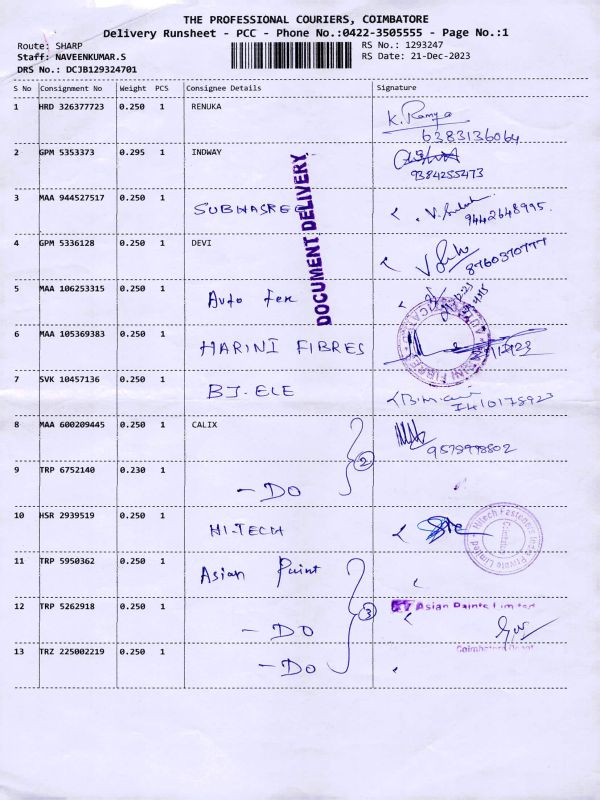 THE PROFESSIONAL COURIERS, COIMBATORE
Delivery Runsheet - PCC - Phone No.:0422-3505555 - Page No.:1
Route: SHARP RS No.: 1293247
Staff: NAVEENKUMAR.S RS Date: 21-Dec-2023
DRS No.: DCJB129324701
S No Consignment No Weight PCS Consignee Details Signature
1 HRD 326377723 0.250 1 RENUKA K. Ramya
6383136064
2 GPM 5353373 0.295 1 INDWAY
9384255473
DOCUMENT DELIVERY
3 MAA 944527517 0.250 1 SUBHASREE
9442648995
4 GPM 5336128 0.250 1 DEVI
8760370777
5 MAA 106253315 0.250 1 Auto Tex
6 MAA 105369383 0.250 1 HARINI FIBRES
7 SVK 10457136 0.250 1 BJ-ELE
8 MAA 600209445 0.250 1 CALIX
9578998802
2
9 TRP 6752140 0.230 1 - DO
10 HSR 2939519 0.250 1 HI-TECH
11 TRP 5950362 0.250 1 Asian Paint
12 TRP 5262918 0.250 1 - DO 3 Asian Paints Limited
Coimbatore Depot
13 TRZ 225002219 0.250 1 - DO